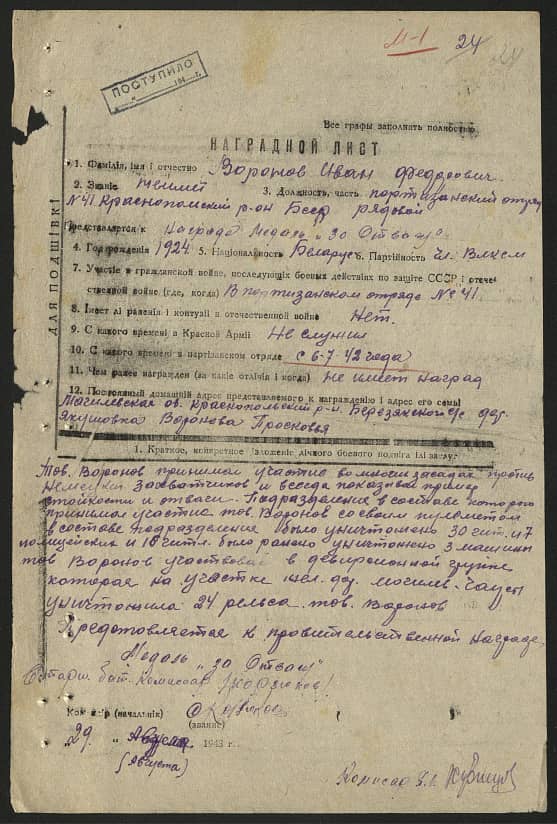 М-1 24
24
ПОСТУПИЛО
194 г.
Все графы заполнить полностью
НАГРАДНОЙ ЛИСТ
ДЛЯ ПОДШІВКІ
1. Фамілія, імя і отчество Воронов Иван Федорович.
2. Званіе 3. Должность, часть партизанский отряд
№41 Краснопольский р-он Бсср рядовой
Представляется к Награде медаль „за Отвагу"
4. Год рождения 1924 5. Національность Беларус 6. Партійность чл. Влксм
7. Участіе в гражданской войне, последующіх боевых действіях по защіте СССР і отече-
ственной войне (где, когда) В партизанском отряде №41.
8. Імеет лі раненія і контузіі в отечественной войне Нет.
9. С какого временi в Красной Арміі Не служил
10. С какого временi в партізанском отряде с 6-7 42 года
11. Чем ранее награжден (за какіе отлічія і когда) Не имеет наград
12. Постоянный домашній адрес представляемого к награжденію і адрес его семьі
Магилевская об. Краснопольский р-н. Березякской с/с дер.
Якушовка Воронова Просковья
1. Краткое, конкретное ізложеніе лічного боевого подвіга ілі заслуг
Тов. Воронов принимал участие во многих засадах против
Немецких захватчиков и всегда показывал пример
стойкости и отваги. Подразделение в составе которого
принимал участие тов. Воронов со своим пулеметом
в составе подразделения было уничтожено 30 гит. и 7
полицейских и 16 гитл. было ранено уничтожено 3 машины
тов Воронов участвовал в деверсионной групе
которая на участке жел. дор. могилев-Чаусы
уничтожила 24 рельса. тов. Воронов
Предстовляется к правительственной награде,
Медаль „за Отвагу"
Старш. бат. Комиссар
Командір (начальнік)
(званіе)
„29." Августа 1943 г.
(Августа)
Комисар